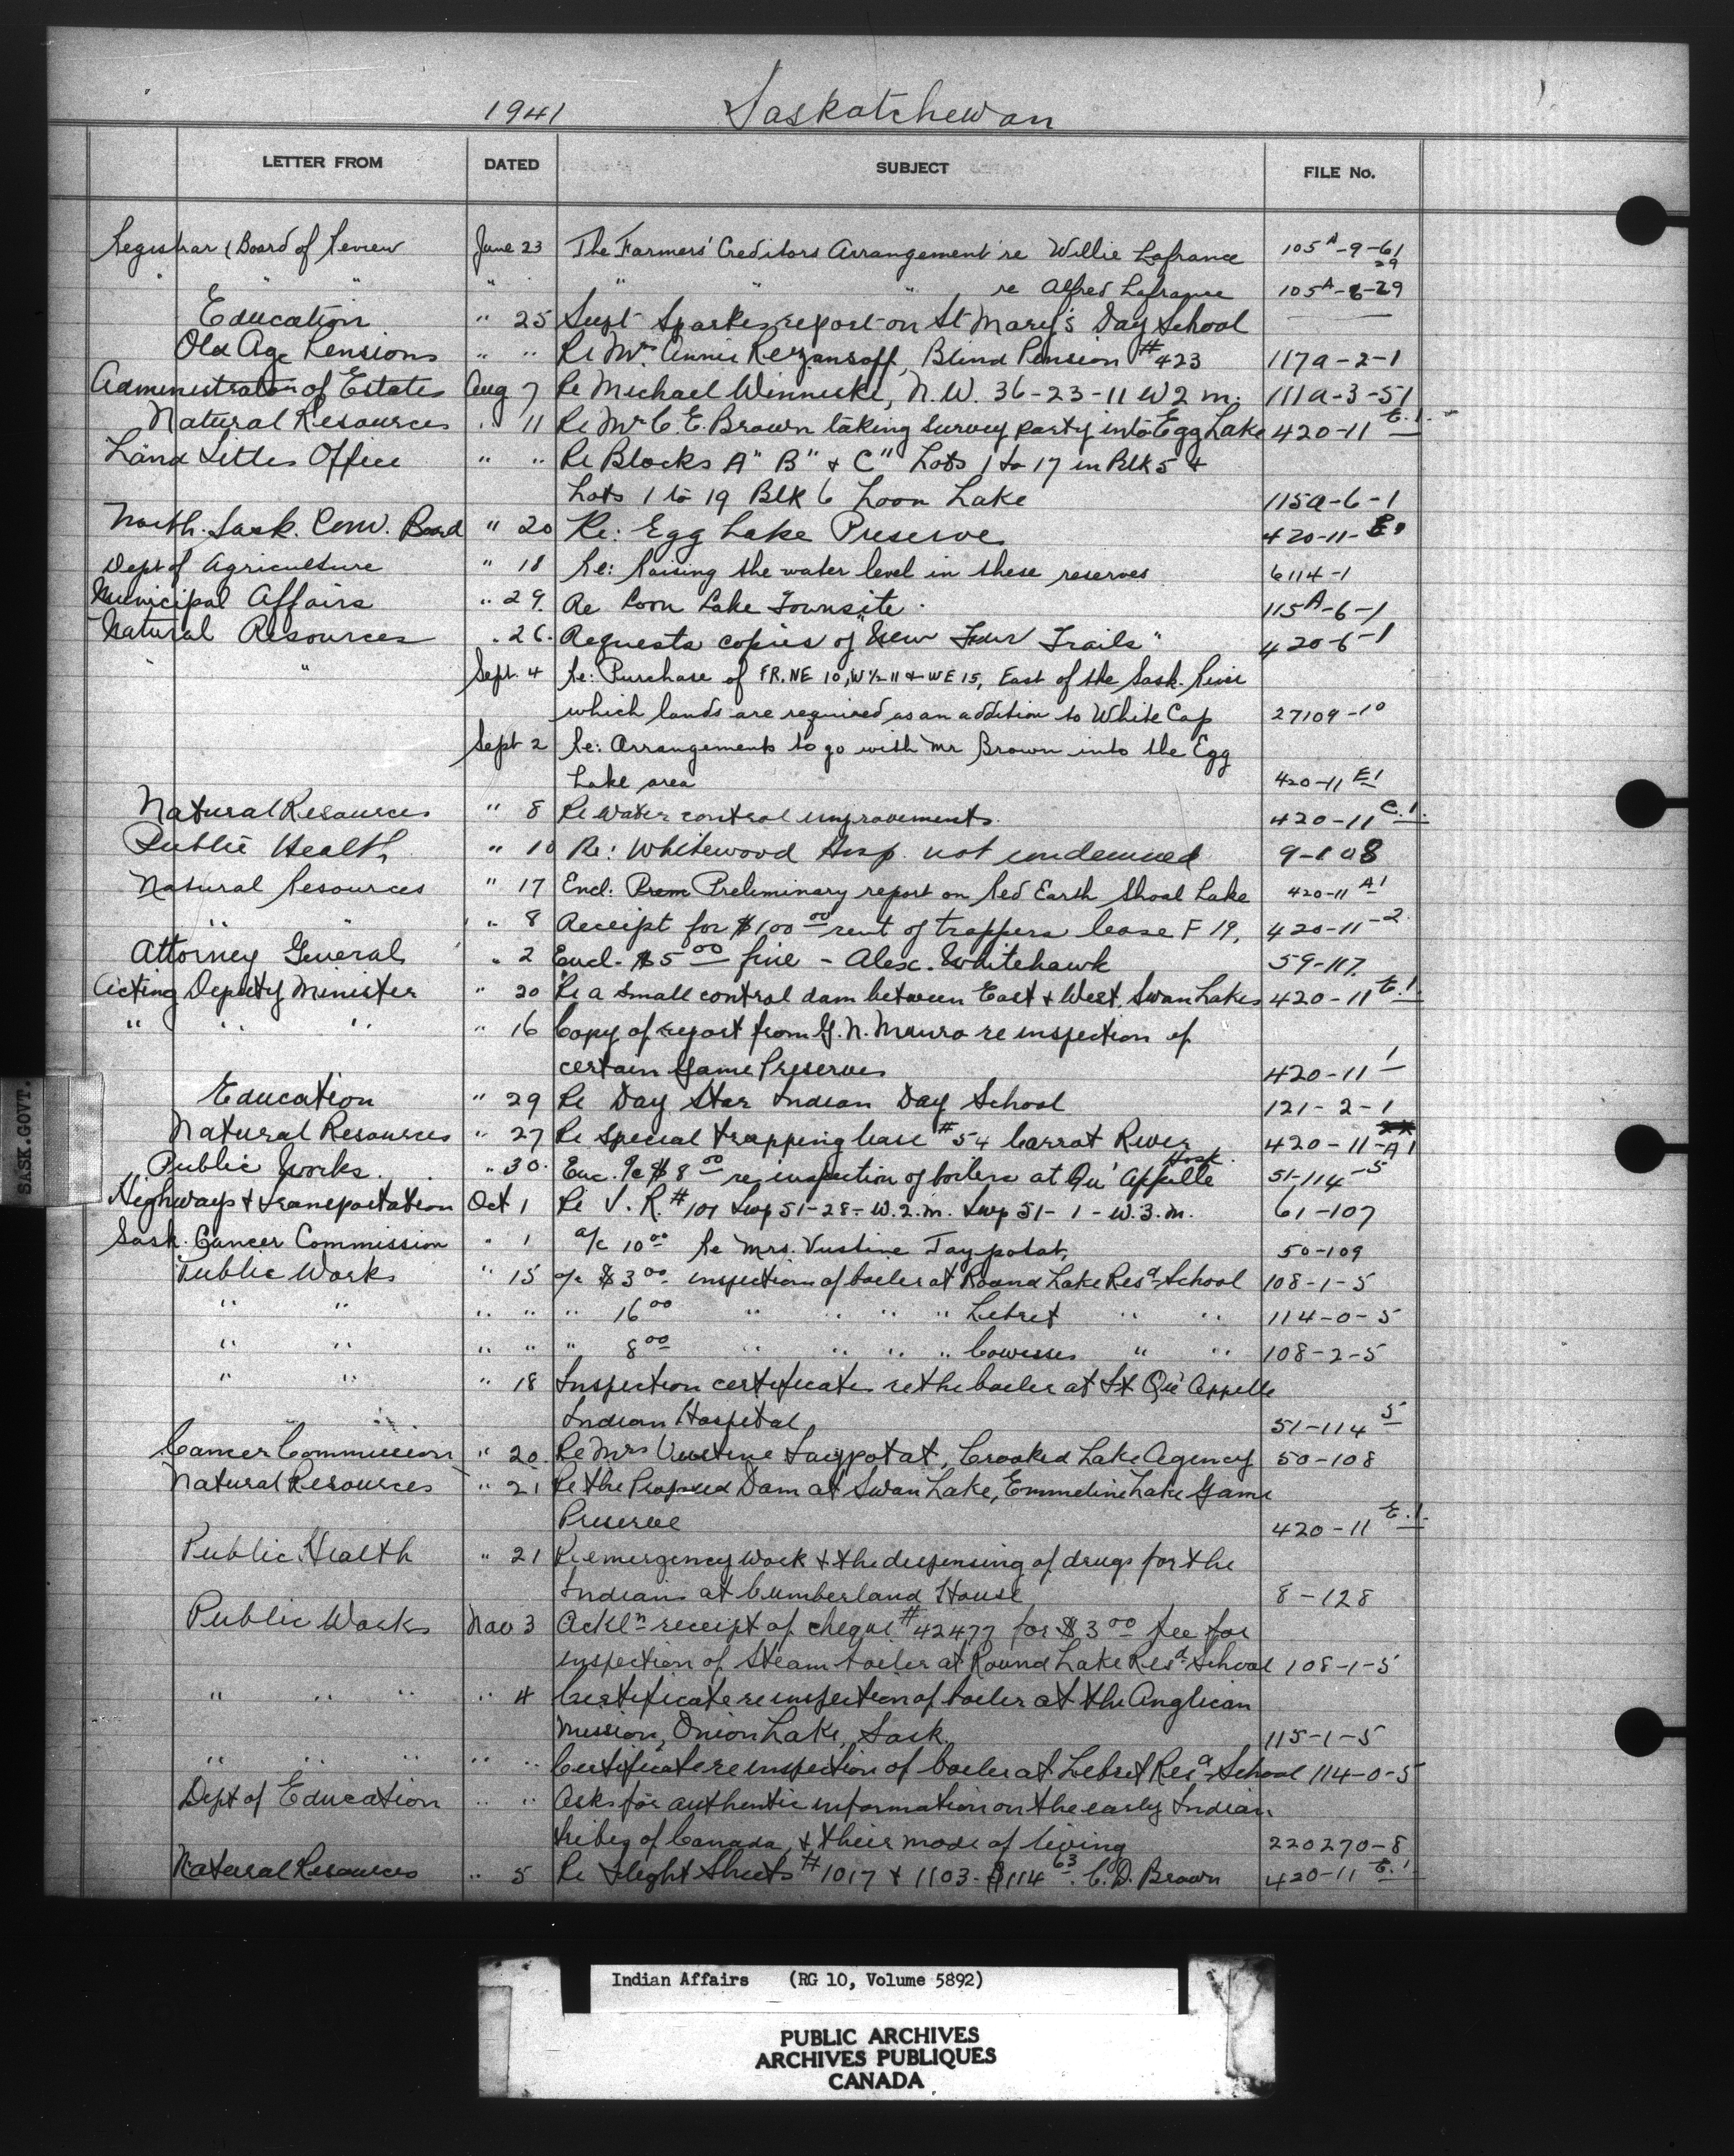 1941 Saskatchewan
LETTER FROM DATED SUBJECT FILE No.
Registrar, Board of Review June 23 The Farmers' Creditors Arrangement re Willie Lafrance 105A-9-61
29
" " " " " " re Alfred Lafrance 105A-6-29
Education " 25 Supt Sparkes report on St Mary's Day School —
Old Age Pensions " " Re Mrs Annie Rezansoff, Blind Pension #423 117a-2-1
Administrator of Estates Aug 7 Re Michael Winneski, N.W. 36-23-11 W2 m. 111a-3-51
Natural Resources " 11 Re Mr C. E. Brown taking survey party into Egg Lake 420-11 E.1.
Land Titles Office " " Re Blocks A" B" & C" Lots 1 to 17 in Blk 5 &
Lots 1 to 19 Blk 6 Loon Lake 115a-6-1
North. Sask. Conv. Board " 20 Re: Egg Lake Preserve 420-11-E1
Dept of Agriculture " 18 Re: Raising the water level in these reserves 6114-1
Municipal Affairs " 29. Re Loon Lake Townsite. 115A-6-1
Natural Resources " 26. Requests copies of "New Fur Trails" 420-6-1
" " Sept. 4 Re: Purchase of FR. NE 10, W½ 11 & WE 15, East of the Sask. River
which lands are required as an addition to White Cap 27109-10
Sept 2 Re: Arrangements to go with Mr Brown into the Egg
Lake area 420-11 E1
Natural Resources " 8 Re water control improvements. 420-11 C.1.
Public Health " 10 Re: Whitewood Hosp. not condemned 9-108
Natural Resources " 17 Encl: Prem Preliminary report on Red Earth Shoal Lake 420-11 A1
" " " 8 Receipt for $100 00 rent of trappers lease F 19, 420-11-2
Attorney General " 2 Encl. $5 00 fine - Alex. Whitehawk 59-117.
Acting Deputy Minister " 20 Re a small control dam between East & West Swan Lakes 420-11 E.1.
" " " " 16 Copy of report from G. N. Munro re inspection of
certain Game Preserves 420-11 1
Education " 29 Re Day Star Indian Day School 121-2-1
Natural Resources " 27 Re special trapping lease #54 Carrot River 420-11-A1
Public Works. " 30. Enc. a/c $8 00 re inspection of boilers at Qu'Appelle Hosp. 51-114-5
Highways & Transportation Oct 1 Re V. R. #101 Twp 51-28-W.2.m. Twp 51-1-W.3.m. 61-107
Sask. Cancer Commission " 1 a/c 10 00 Re Mrs. Vustine Taypotat, 50-109
Public Works " 15 a/c $3 00 inspection of boiler at Round Lake Resd School 108-1-5
" " " " " 16 00 " " " " Lebret " " 114-0-5
" " " " " 8 00 " " " " Cowesses " " 108-2-5
" " " 18 Inspection certificate re the boiler at Ft Qu'Appelle
Indian Hospital 51-114 5
Cancer Commission " 20. Re Mrs Vustine Taypotat, Crooked Lake Agency 50-108
Natural Resources " 21 Re the Proposed Dam at Swan Lake, Emmeline Lake Game
Preserve 420-11 E.1.
Public Health " 21 Re emergency work & the dispensing of drugs for the
Indians at Cumberland House 8-128
Public Works Nov 3 Ackln receipt of cheque #42477 for $3 00 fee for
inspection of steam boiler at Round Lake Resd School 108-1-5
" " " " 4 Certificate re inspection of boiler at the Anglican
Mission, Onion Lake, Sask. 115-1-5
" " " " " Certificate re inspection of boiler at Lebret Resd School 114-0-5
Dept of Education " " Asks for authentic information on the early Indian
tribes of Canada, & their mode of living 220270-8
Natural Resources " 5 Re Flight Sheets #1017 & 1103. $114 63. C. D. Brown 420-11 E.1
SASK. GOVT.
Indian Affairs (RG 10, Volume 5892)
PUBLIC ARCHIVES
ARCHIVES PUBLIQUES
CANADA